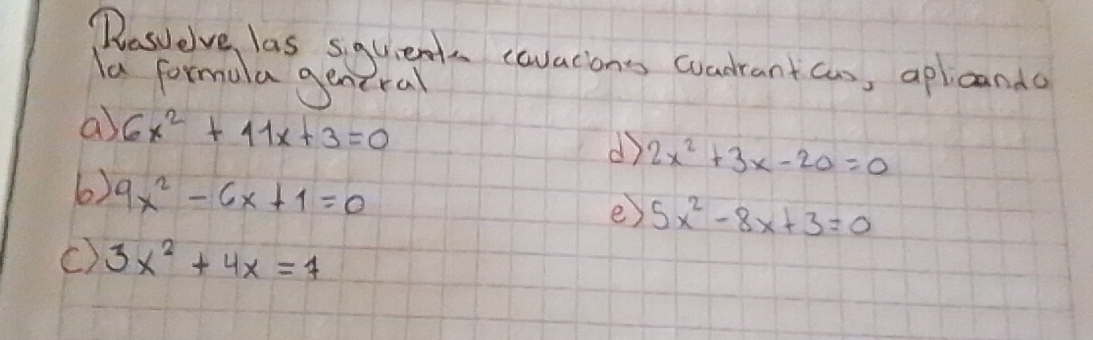 Resuelve las siguientes ecuaciones cuadranticas, aplicando
la formula general
a) 6x² + 11x + 3 = 0
b) 9x² - 6x + 1 = 0
c) 3x² + 4x = 1
d) 2x² + 3x - 20 = 0
e) 5x² - 8x + 3 = 0